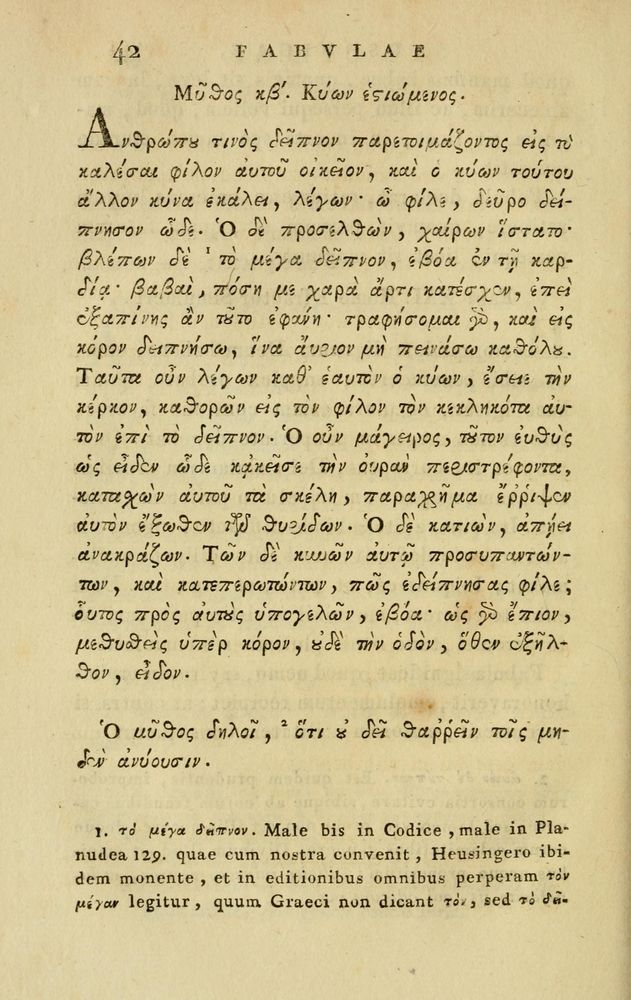 42 FABVLAE
Μῦθος κβ'. Κύων ἑστιώμενος.
Ἀνθρώπου τινὸς δεῖπνον παρετοιμάζοντος εἰς τὸ
καλέσαι φίλον αὑτοῦ οἰκεῖον, καὶ ὁ κύων τούτου
ἄλλον κύνα ἐκάλει, λέγων· ὦ φίλε, δεῦρο δεί-
πνησον ὧδε. Ὁ δὲ προσελθὼν, χαίρων ἵστατο·
βλέπων δὲ ¹ τὸ μέγα δεῖπνον, ἐβόα ἐν τῇ καρ-
δίᾳ· βαβαὶ, πόση με χαρὰ ἄρτι κατέσχεν, ἐπεὶ
ἐξαπίνης ἂν τοῦτο ἐφάνη· τραφήσομαι γὰρ, καὶ εἰς
κόρον δειπνήσω, ἵνα ἄυριον μὴ πεινάσω καθόλου.
Ταῦτα οὖν λέγων καθ' ἑαυτὸν ὁ κύων, ἔσειε τὴν
κέρκον, καθορῶν εἰς τὸν φίλον τὸν κεκληκότα αὐ-
τὸν ἐπὶ τὸ δεῖπνον. Ὁ οὖν μάγειρος, τοῦτον εὐθὺς
ὡς εἶδεν ὧδε κἀκεῖσε τὴν οὐρὰν περιστρέφοντα,
κατασχὼν αὐτοῦ τὰ σκέλη, παραχρῆμα ἔρριψεν
αὐτὸν ἔξωθεν τῶν θυρίδων. Ὁ δὲ κατιὼν, ἀπῄει
ἀνακράζων. Τῶν δὲ κυνῶν αὐτῷ προσυπαντών-
των, καὶ κατεπερωτώντων, πῶς ἐδείπνησας φίλε;
οὗτος πρὸς αὐτοὺς ὑπογελῶν, ἐβόα· ὡς γὰρ ἔπιον,
μεθυθεὶς ὑπὲρ κόρον, οὐδὲ τὴν ὁδὸν, ὅθεν ἐξῆλ-
θον, εἶδον.
Ὁ μῦθος δηλοῖ, ² ὅτι οὐ δεῖ θαῤῥεῖν τοῖς μη-
δὲν ἀνύουσιν.
1. τὸ μέγα δεῖπνον. Male bis in Codice, male in Pla-
nudea 129. quae cum nostra convenit, Heusingero ibi-
dem monente, et in editionibus omnibus perperam τὸν
μέγαν legitur, quum Graeci non dicant τὸν, sed τὸ δεῖ-